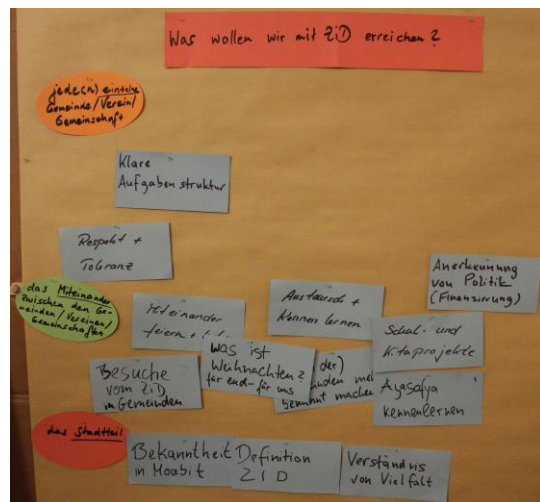 Was wollen wir mit ZiD erreichen?
jede(n) einzelne
Gemeinde/Verein/
Gemeinschaft
Klare
Aufgabenstruktur
Respekt +
Toleranz
das Miteinander
zwischen den Ge-
meinden/Vereinen/
Gemeinschaften
Miteinander
feiern +
Austausch +
Kennenlernen
Anerkennung
von Politik
(Finanzierung)
Schul- und
Kitaprojekte
Was ist
Weihnachten?
für euch - für uns
der)
bekannt machen
Besuche
vom ZiD
in Gemeinden
Ayasofya
kennenlernen
das Stadtteil
Bekanntheit
in Moabit
Definition
ZID
Verständnis
von Vielfalt